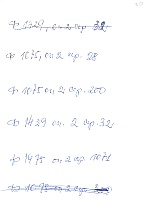 ф 1429, оп 2 стр. 32
ф 1075, оп 2 стр. 28
ф 1075 оп 2 стр. 200
ф 1429 оп. 2 стр. 32
ф 1975 оп 2 стр 1071
ф 1075 оп 2 стр